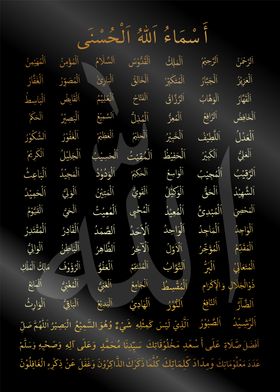 أَسْمَاءُ اللهُ الْحُسْنَى
الرَّحْمَنُ الرَّحِيْمُ الْمَلِكُ الْقُدُّوْسُ السَّلَامُ الْمُؤْمِنُ الْمُهَيْمِنُ
الْعَزِيْزُ الْجَبَّارُ الْمُتَكَبِّرُ الْخَالِقُ الْبَارِئُ الْمُصَوِّرُ الْغَفَّارُ
الْقَهَّارُ الْوَهَّابُ الرَّزَّاقُ الْفَتَّاحُ الْعَلِيْمُ الْقَابِضُ الْبَاسِطُ
الْخَافِضُ الرَّافِعُ الْمُعِزُّ الْمُذِلُّ السَّمِيْعُ الْبَصِيْرُ الْحَكَمُ
الْعَدْلُ اللَّطِيْفُ الْخَبِيْرُ الْحَلِيْمُ الْعَظِيْمُ الْغَفُوْرُ الشَّكُوْرُ
الْعَلِيُّ الْكَبِيْرُ الْحَفِيْظُ الْمُقِيْتُ الْحَسِيْبُ الْجَلِيْلُ الْكَرِيْمُ
الرَّقِيْبُ الْمُجِيْبُ الْوَاسِعُ الْحَكِيْمُ الْوَدُوْدُ الْمَجِيْدُ الْبَاعِثُ
الشَّهِيْدُ الْحَقُّ الْوَكِيْلُ الْقَوِيُّ الْمَتِيْنُ الْوَلِيُّ الْحَمِيْدُ
الْمُحْصِي الْمُبْدِئُ الْمُعِيْدُ الْمُحْيِي الْمُمِيْتُ الْحَيُّ الْقَيُّوْمُ
الْوَاجِدُ الْمَاجِدُ الْوَاحِدُ الْأَحَدُ الصَّمَدُ الْقَادِرُ الْمُقْتَدِرُ
الْمُقَدِّمُ الْمُؤَخِّرُ الْأَوَّلُ الْآخِرُ الظَّاهِرُ الْبَاطِنُ الْوَالِي
الْمُتَعَالِي الْبَرُّ التَّوَّابُ الْمُنْتَقِمُ الْعَفُوُّ الرَّؤُوْفُ مَالِكُ الْمُلْكِ
ذُوالْجَلَالِ وَالْإِكْرَامِ الْمُقْسِطُ الْجَامِعُ الْغَنِيُّ الْمُغْنِي الْمَانِعُ
الضَّارُّ النَّافِعُ النُّوْرُ الْهَادِي الْبَدِيْعُ الْبَاقِي الْوَارِثُ
الرَّشِيْدُ الصَّبُوْرُ الَّذِيْ لَيْسَ كَمِثْلِهِ شَيْءٌ وَهُوَ السَّمِيْعُ الْبَصِيْرُ اللّٰهُمَّ صَلِّ
أَفْضَلَ صَلَاةٍ عَلَى أَسْعَدِ مَخْلُوْقَاتِكَ سَيِّدِنَا مُحَمَّدٍ وَعَلَى آلِهِ وَصَحْبِهِ وَسَلِّمْ
عَدَدَ مَعْلُوْمَاتِكَ وَمِدَادَ كَلِمَاتِكَ كُلَّمَا ذَكَرَكَ الذَّاكِرُوْنَ وَغَفَلَ عَنْ ذِكْرِهِ الْغَافِلُوْنَ
الله